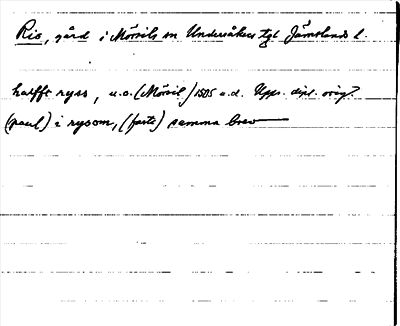 Ris, gård i Mörsils sn Undersåkers tgt Jämtlands l.
halfft ryss, u.o. (Mörsil) 1505 u.d. Upps. dipl. orig?
(paul) i rysom, (forte) samma brev